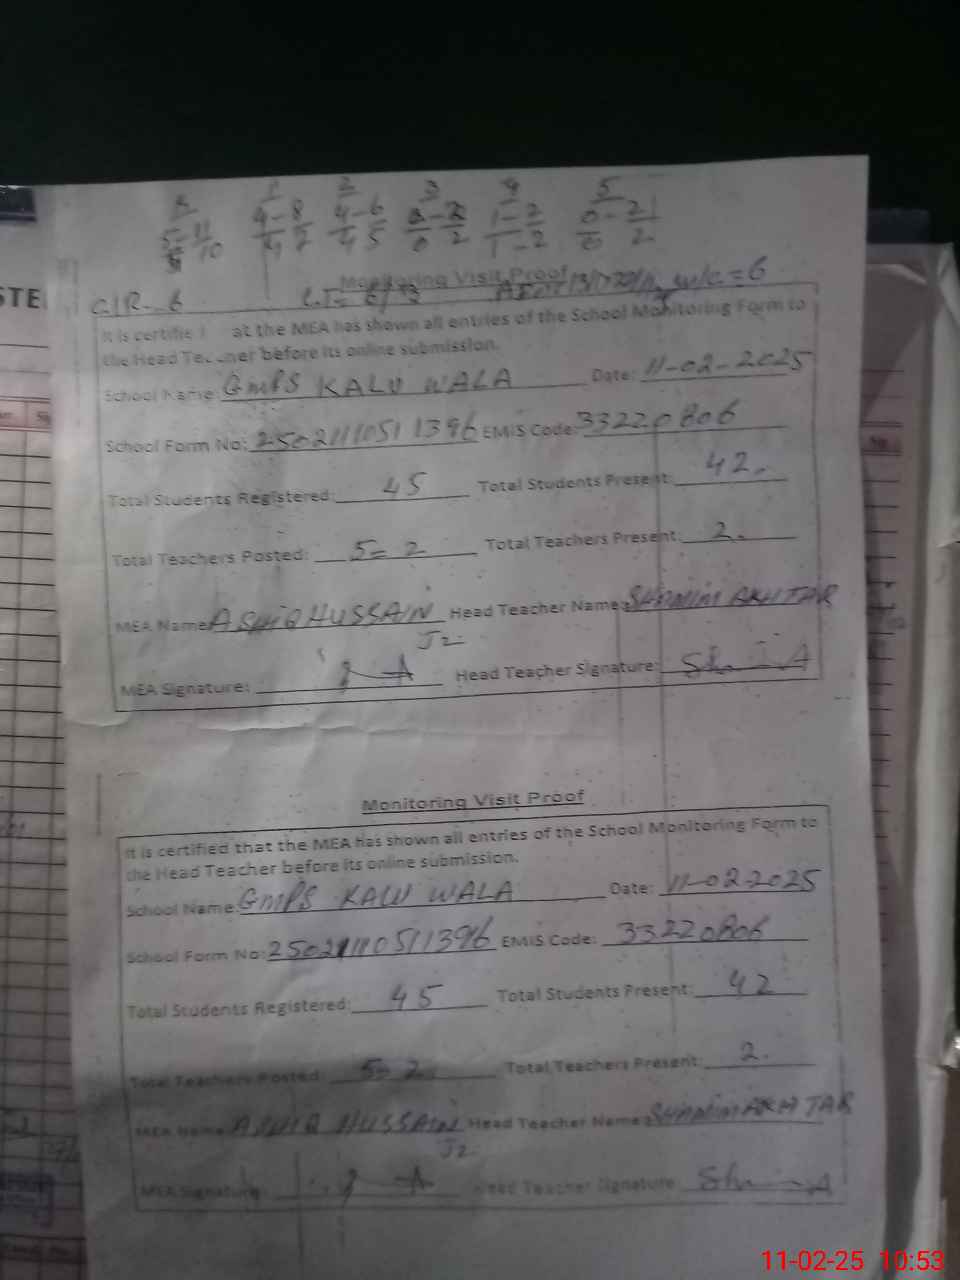 STE
1 2 3 4 5
4-8 4-6 3-2 1-2 0-2
4 7 4 5 0 2 1-2 0 2
Monitoring Visit Proof
C/R-6 w/c=6
It is certifie at the MEA has shown all entries of the School Monitoring Form to
the Head Teacher before its online submission.
School Name: GMPS KALU WALA Date: 11-02-2025
School Form No: 25021110511396 EMIS Code: 33220806
Total Students Registered: 45 Total Students Present: 42.
Total Teachers Posted: 5=2 Total Teachers Present: 2.
MEA Name: ASHIQ HUSSAIN Head Teacher Name: SHAMIM AKHTAR
J2
MEA Signature: Head Teacher Signature: Sh A
Monitoring Visit Proof
It is certified that the MEA has shown all entries of the School Monitoring Form to
the Head Teacher before its online submission.
School Name: GMPS KALU WALA Date: 11-02-2025
School Form No: 25021110511396 EMIS Code: 33220806
Total Students Registered: 45 Total Students Present: 42
Total Teachers Posted: 5=2 Total Teachers Present: 2.
MEA Name: ASHIQ HUSSAIN Head Teacher Name: SHAMIM AKHTAR
J2
MEA Signature: Head Teacher Signature: Sh A
11-02-25 10:53